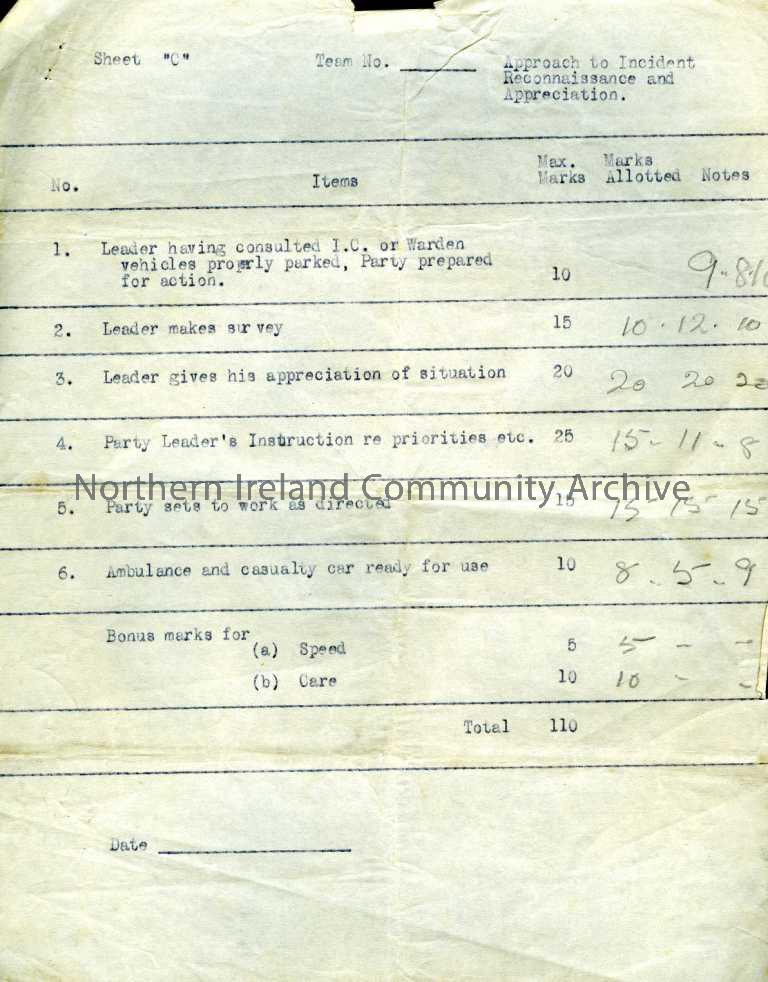 Sheet "C" Team No. ________ Approach to Incident
Reconnaissance and
Appreciation.
No. Items Max. Marks Marks Allotted Notes
1. Leader having consulted I.C. or Warden
vehicles proprly parked, Party prepared
for action. 10 9 - 8
2. Leader makes survey 15 10 . 12 . 10
3. Leader gives his appreciation of situation 20 20 20 20
4. Party Leader's Instruction re priorities etc. 25 15 - 11 - 8
Northern Ireland Community Archive
5. Party sets to work as directed 15 15 15 15
6. Ambulance and casualty car ready for use 10 8 - 5 - 9
Bonus marks for
(a) Speed 5 5 - -
(b) Care 10 10 - -
Total 110
Date ________